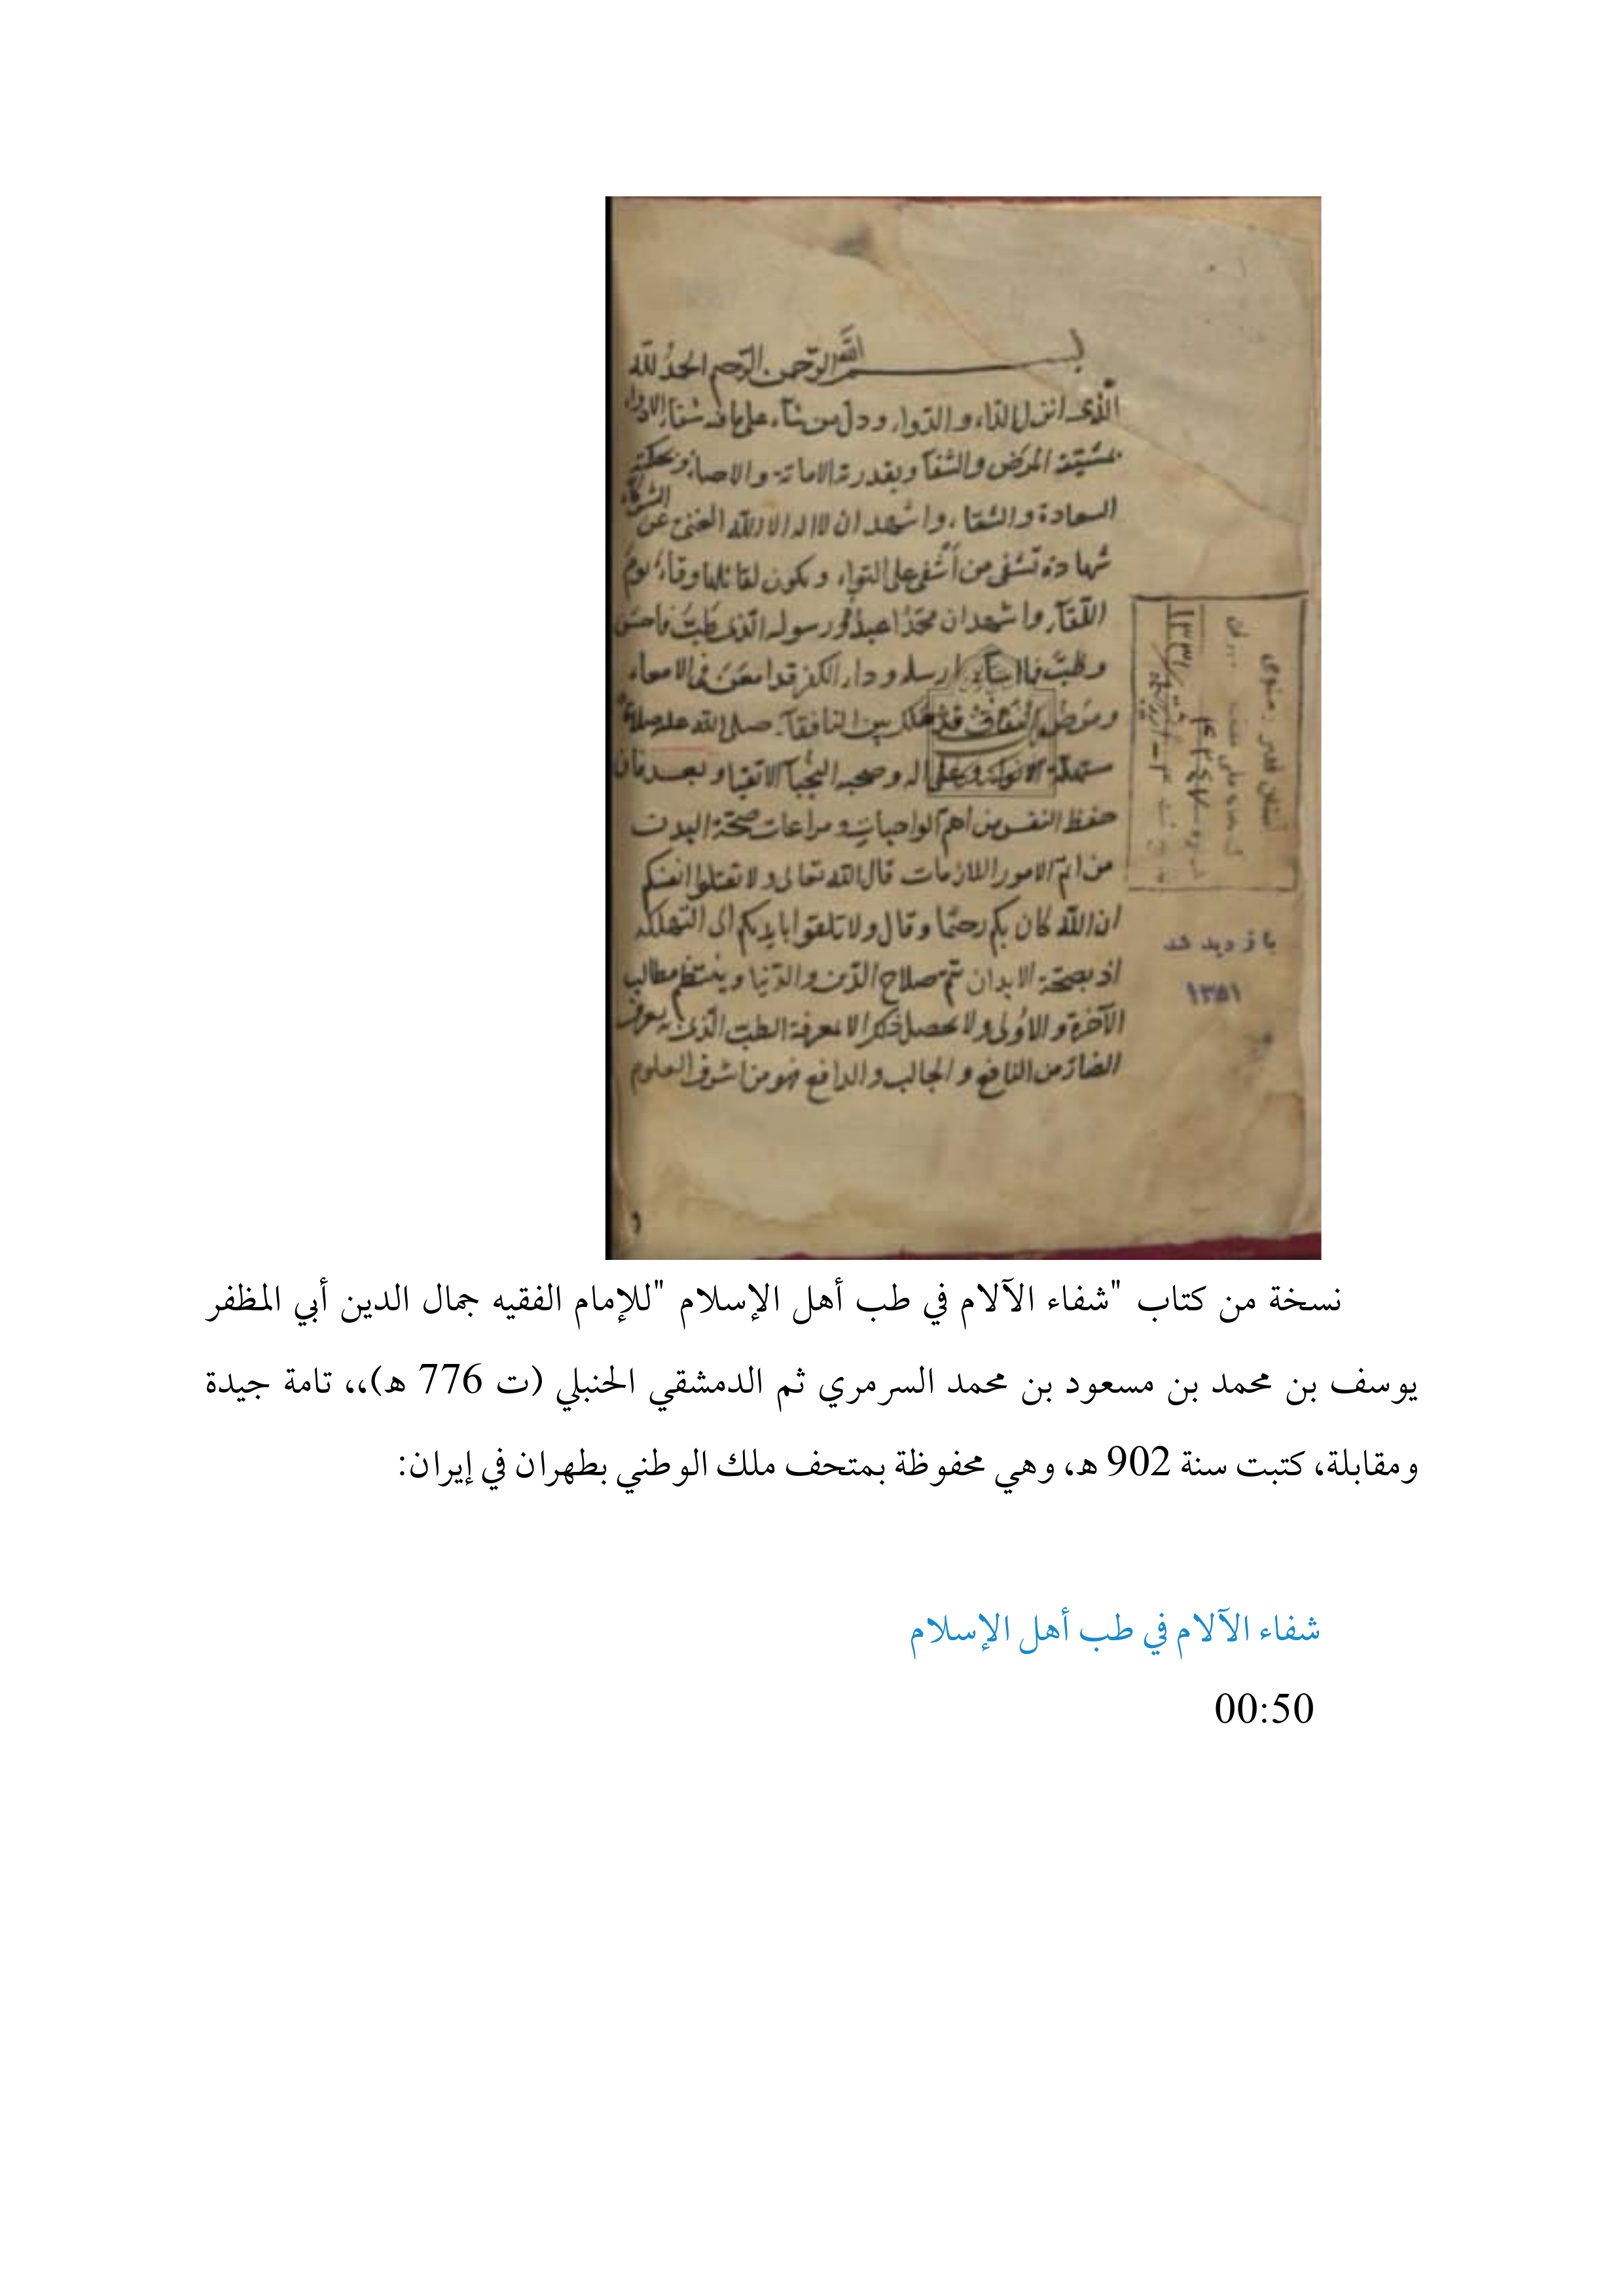 بسم الله الرحمن الرحيم الحمد لله
الذى انزل الداء والدواء ودل من شاء على ما فيه شفاء الادواء
بمشيته المرض والشفا وبقدرته الاماتة والاحيا وبحكمته
السعادة والشقاء واشهد ان لا اله الا الله الغنى عن الشركاء
شهادة تشفى من أشفى على التواء وتكون لقائلها وقاء يوم
اللقآء واشهد ان محمدا عبده ورسوله الذى طب فاحسن
وطب ارسله ودار الكفر قد امعن فى الامعاء
ومرض النفاق قد بين النافقآء صلى الله عليه صلاة
الانواء وعلى اله وصحبه النجبآ الاتقيا وبعد فان
حفظ النفس من اهم الواجبات ومراعات صحة البدن
من اتم الامور اللازمات قال الله تعالى ولا تقتلوا انفسكم
ان الله كان بكم رحيما وقال ولا تلقوا بايديكم الى التهلكه
اذ بصحة الابدان تتم صلاح الدين والدنيا وينتظم مطالب
الآخرة والاولى ولا يحصل ذلك الا بمعرفة الطب الذى به يعرف
الضار من النافع والجالب والدافع فهو من اشرف العلوم
بازديد شد
۱۳۵۱
نسخة من كتاب "شفاء الآلام في طب أهل الإسلام "للإمام الفقيه جمال الدين أبي المظفر
يوسف بن محمد بن مسعود بن محمد السرمري ثم الدمشقي الحنبلي (ت 776 هـ)،، تامة جيدة
ومقابلة، كتبت سنة 902 هـ، وهي محفوظة بمتحف ملك الوطني بطهران في إيران:
شفاء الآلام في طب أهل الإسلام
00:50